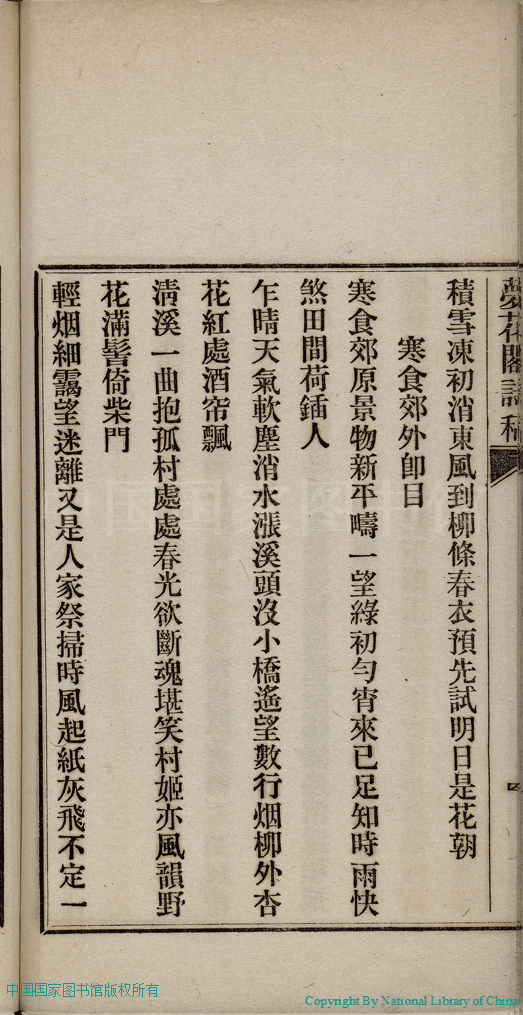 夢花閣詩稿
積雪凍初消東風到柳條春衣預先試明日是花朝
寒食郊外卽目
寒食郊原景物新平疇一望綠初勻宵來已足知時雨快
煞田間荷鍤人
乍晴天氣軟塵消水漲溪頭沒小橋遙望數行烟柳外杏
花紅處酒帘飄
淸溪一曲抱孤村處處春光欲斷魂堪笑村姬亦風韻野
花滿髻倚柴門
輕烟細靄望迷離又是人家祭掃時風起紙灰飛不定一
中国国家图书馆版权所有
Copyright By National Library of China